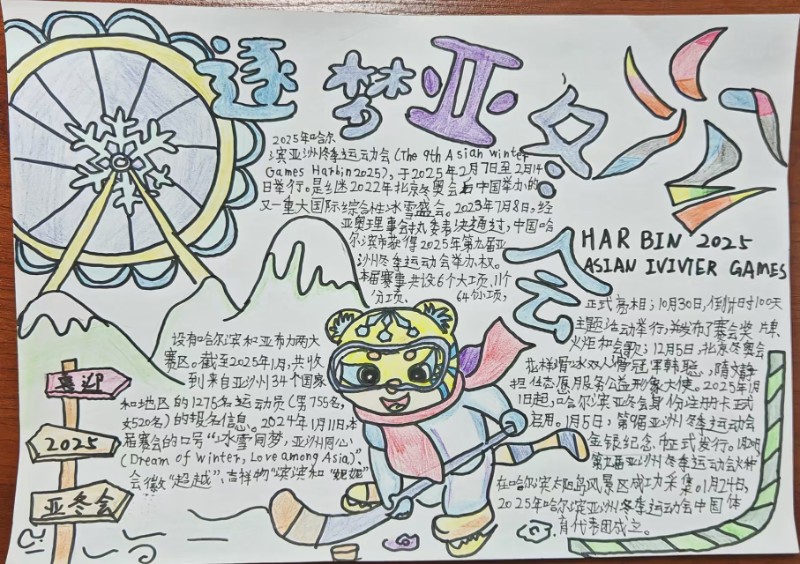 逐梦亚冬会
2025年哈尔
滨亚洲冬季运动会(The 9th Asian Winter
Games Harbin2025),于2025年2月7日至2月14
日举行。是继2022年北京冬奥会后中国举办的
又一重大国际综合性冰雪盛会。2023年7月8日,经
亚奥理事会执委表决通过,中国哈
尔滨市获得2025年第九届亚
洲冬季运动会举办权。
本届赛事共设6个大项,11个
分项、64个小项,
设有哈尔滨和亚布力两大
赛区。截至2025年1月,共收
到来自亚洲34个国家
和地区的1275名运动员(男755名,
女520名)的报名信息。2024年1月11日,本
届赛会的口号"冰雪同梦,亚洲同心
(Dream of Winter, Love among Asia)",
会徽"超越"、吉祥物"滨滨和"妮妮"
HARBIN 2025
ASIAN IVIVIER GAMES
正式亮相;10月30日,倒计时100天
主题活动举行,并发布了赛会奖牌
火炬和会歌;12月5日,北京冬奥会
花样滑冰双人滑冠军韩聪,隋文静
担任志愿服务公益形象大使。2025年1月
1日起,哈尔滨亚冬会身份注册卡正式
启用。1月5日,第9届亚洲冬季运动会
金银纪念币正式发行。
第九届亚洲冬季运动会火种
在哈尔滨太阳岛风景区成功采集。1月24日,
2025年哈尔滨亚洲冬季运动会中国体
育代表团成立。
喜迎
2025
亚冬会